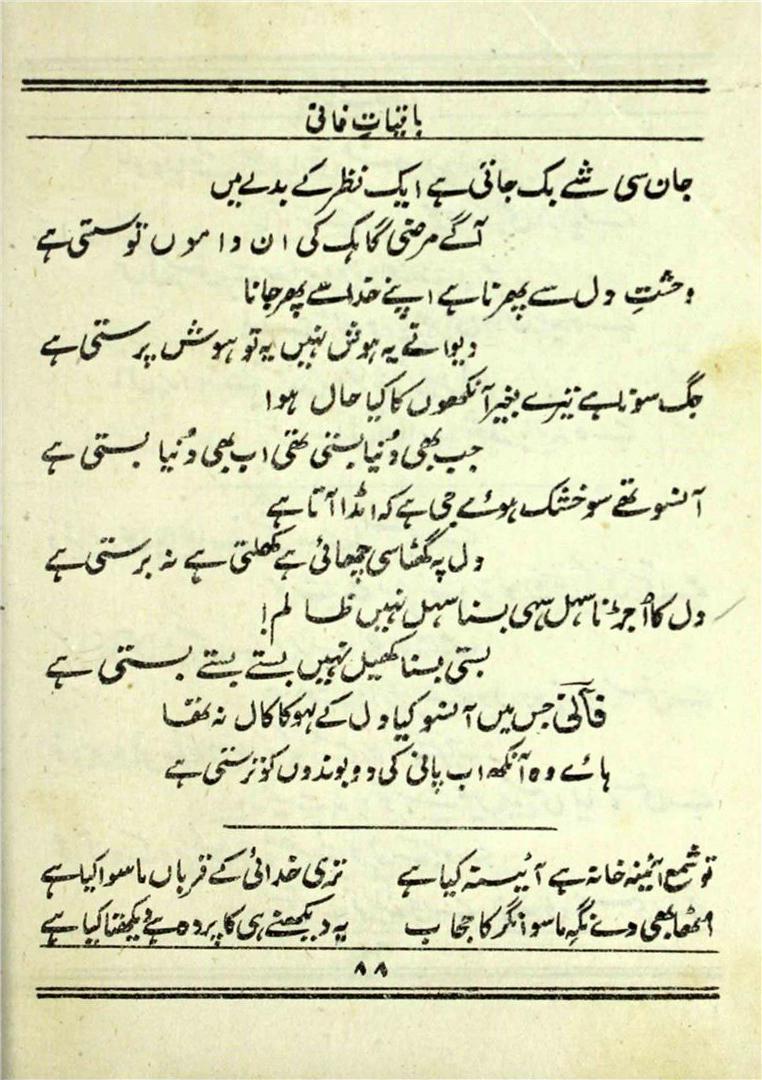 باقیاتِ فانی
جان سی شے بک جاتی ہے ایک نظر کے بدلے میں
آگے مرضی گاہک کی ان داموں تو سستی ہے
وحشتِ دل سے پھرنا ہے اپنے خدا سے پھر جانا
دیوانے یہ ہوش نہیں یہ تو ہوش پرستی ہے
جگ سونا ہے تیرے بغیر آنکھوں کا کیا حال ہوا
جب بھی دُنیا بستی تھی اب بھی دُنیا بستی ہے
آنسو تھے سو خشک ہوئے جی ہے کہ امڈا آتا ہے
دل پہ گھٹا سی چھائی ہے کھلتی ہے نہ برستی ہے
دل کا اُجڑنا سہل سہی بسنا سہل نہیں ظالم!
بستی بسنا کھیل نہیں بستے بستے بستی ہے
فانیؔ جس میں آنسو کیا دل کے لہو کا کال نہ تھا
ہائے وہ آنکھ اب پانی کی دو بوندوں کو ترستی ہے
تو شمع آئینہ خانہ ہے آئینہ کیا ہے تری خدائی کے قرباں ماسوا کیا ہے
اٹھا بھی دے نگہِ ماسوا نگر کا حجاب یہ دیکھنے ہی کا پردہ ہے دیکھنا کیا ہے
۸۸